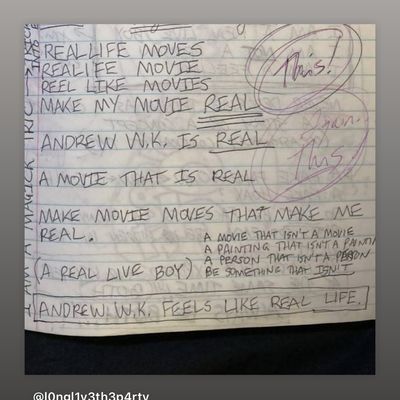 REALLIFE MOVES
REALIFE MOVIE
REEL LIKE MOVIES
This!
MAKE MY MOVIE REAL
ANDREW W.K. IS REAL
This
A MOVIE THAT IS REAL
MAKE MOVIE MOVES THAT MAKE ME
REAL.
A MOVIE THAT ISN'T A MOVIE
A PAINTING THAT ISN'T A PAINTIN
A PERSON THAT ISN'T A PERSON
(A REAL LIVE BOY) BE SOMETHING THAT ISN'T
ANDREW W.K. FEELS LIKE REAL LIFE.
I AM A MAGICK
@l0ngl1v3th3p4rty